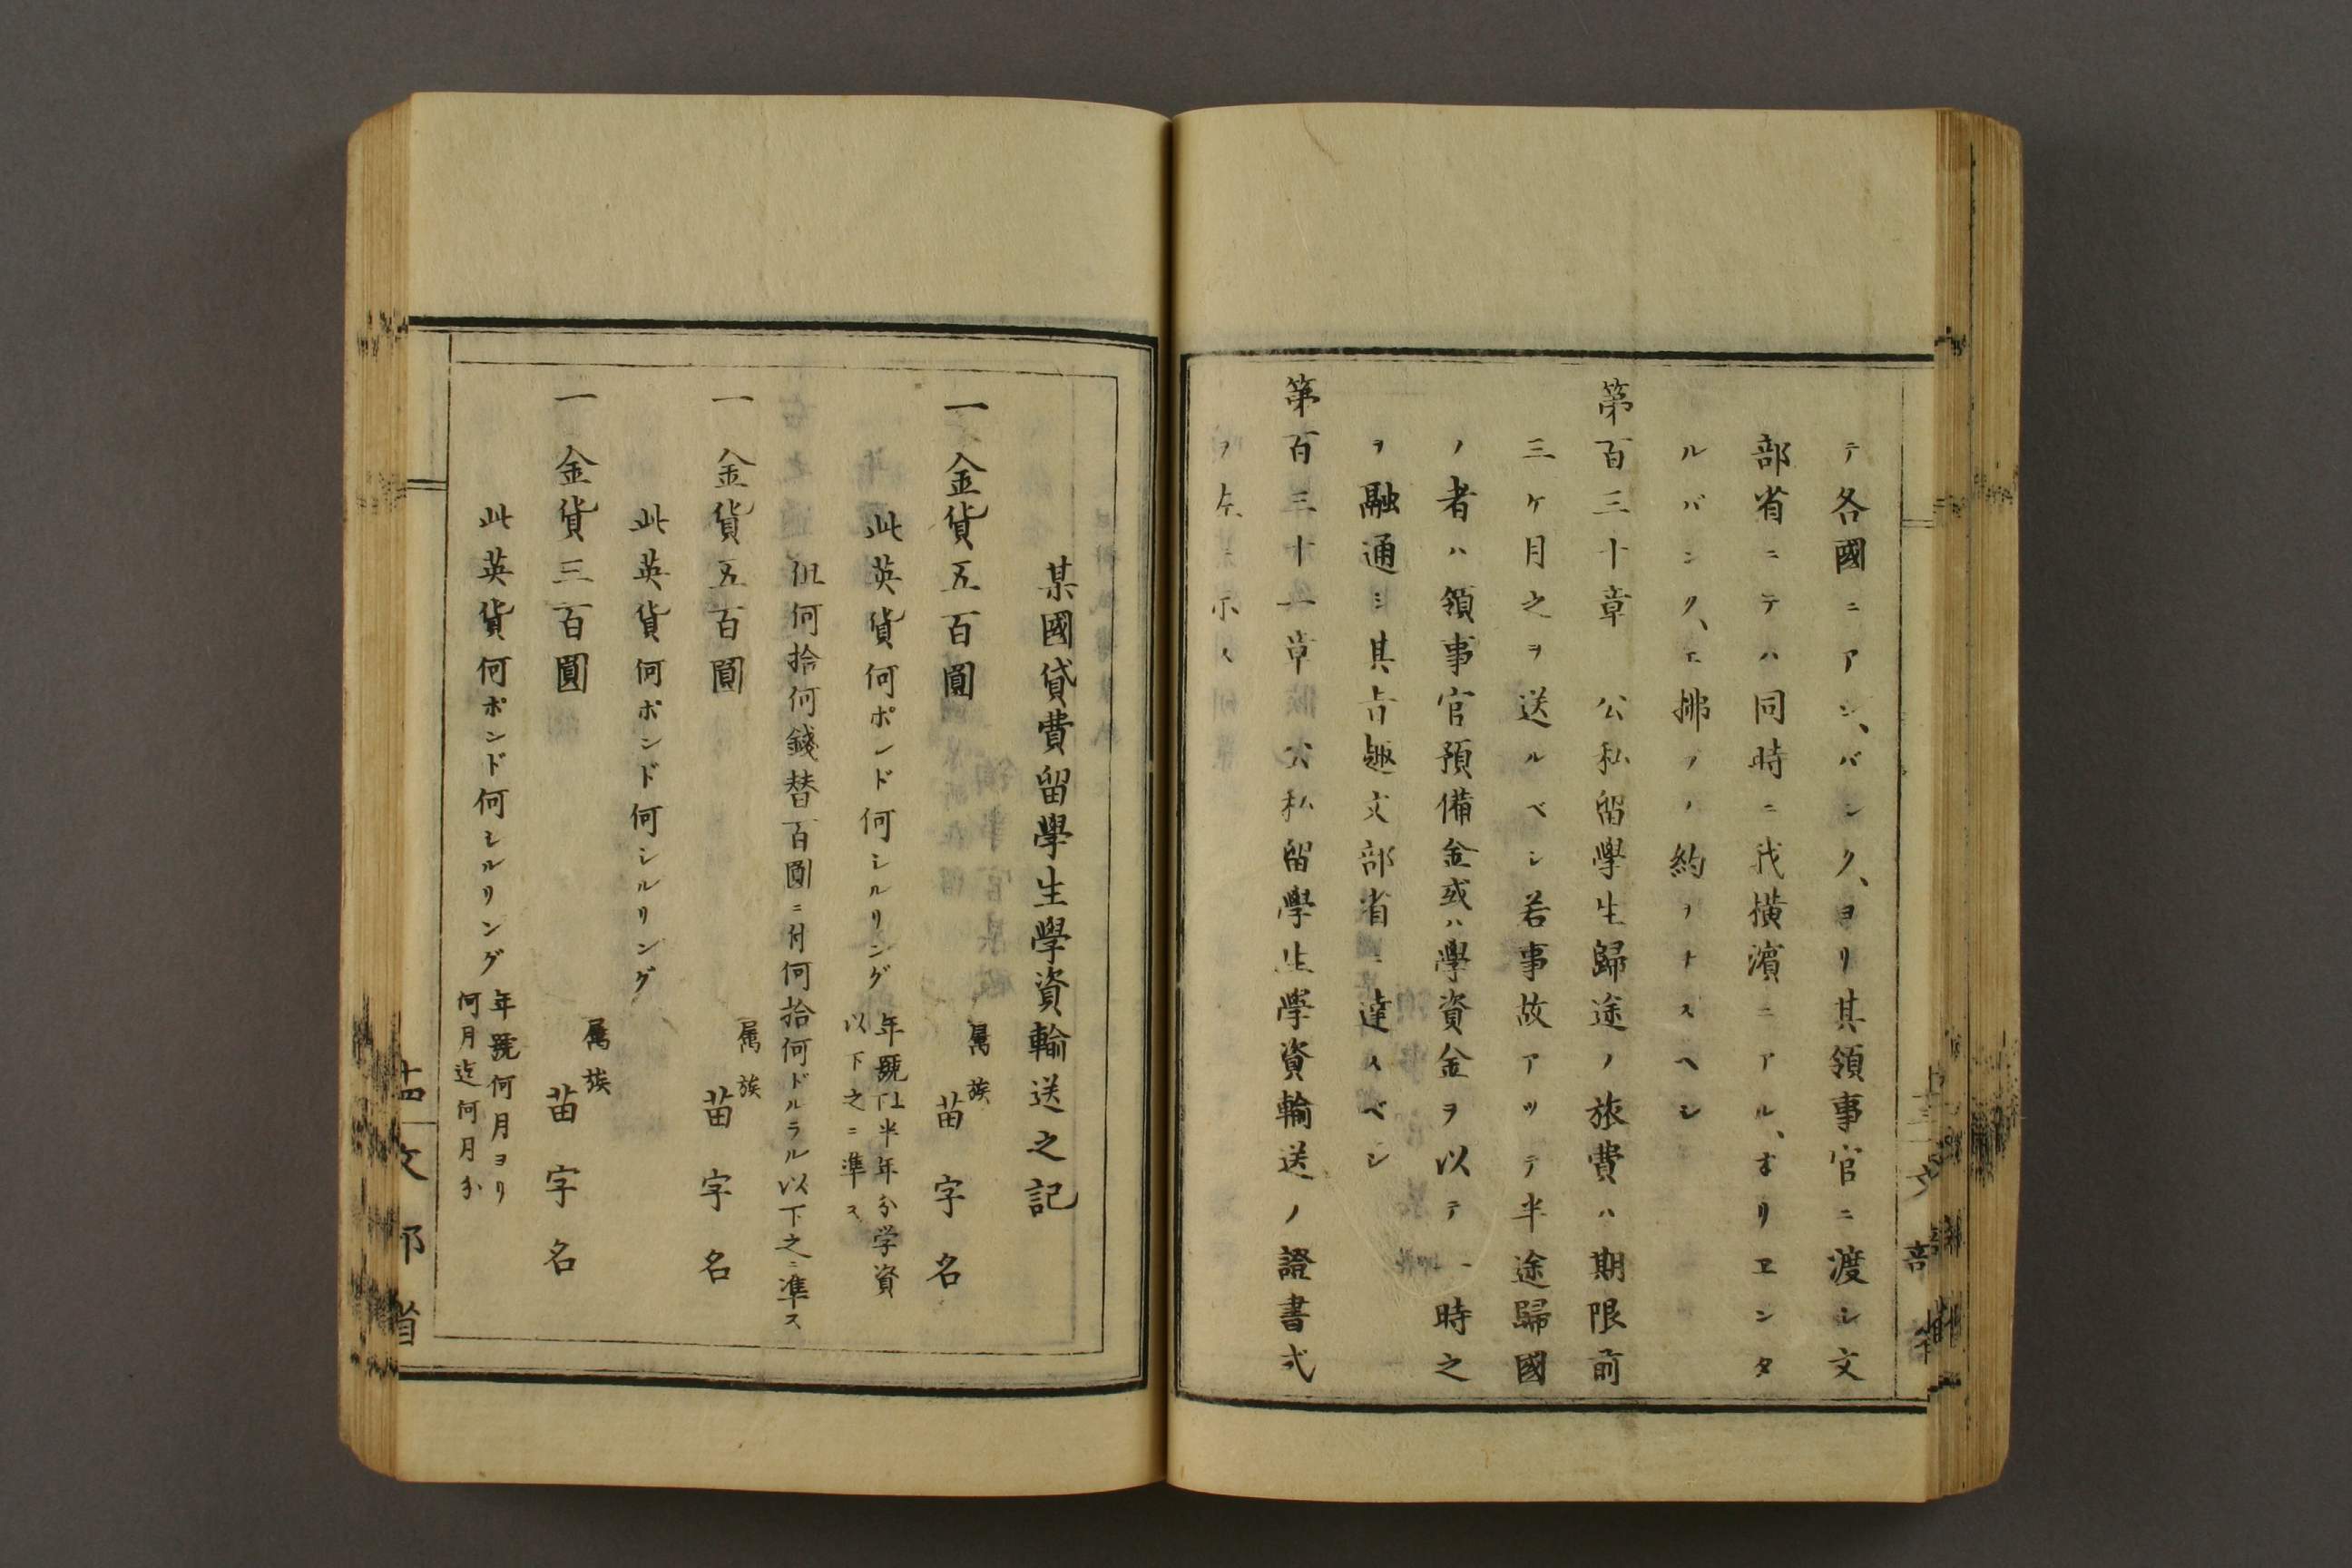 テ各國ニアル、バンク、ヨリ其領事官ニ渡シ文
部省ニテハ同時ニ我横濱ニアル、オリエンタ
ルバンク、エ拂フノ約ヲナスヘシ
第百三十章 公私留學生歸途ノ旅費ハ期限前
三ケ月之ヲ送ルベシ若事故アツテ半途歸國
ノ者ハ領事官預備金或ハ學資金ヲ以テ一時之
ヲ融通シ其旨趣文部省ニ達スベシ
第百三十一章 公私留學生學資輸送ノ證書式
ヲ左ニ示ス
某國貸費留學生學資輸送之記
一金貨五百圓 属族 苗字名
此英貨何ポンド何シルリング 年號 半年分学資
以下之ニ準ス
但何拾何錢替百圓ニ付何拾何ドルラル以下之ニ準ス
一金貨五百圓 属族 苗字名
此英貨何ポンド何シルリング
一金貨三百圓 属族 苗字名
此英貨何ポンド何シルリング 年號何月ヨリ
何月迄何月分
文部省